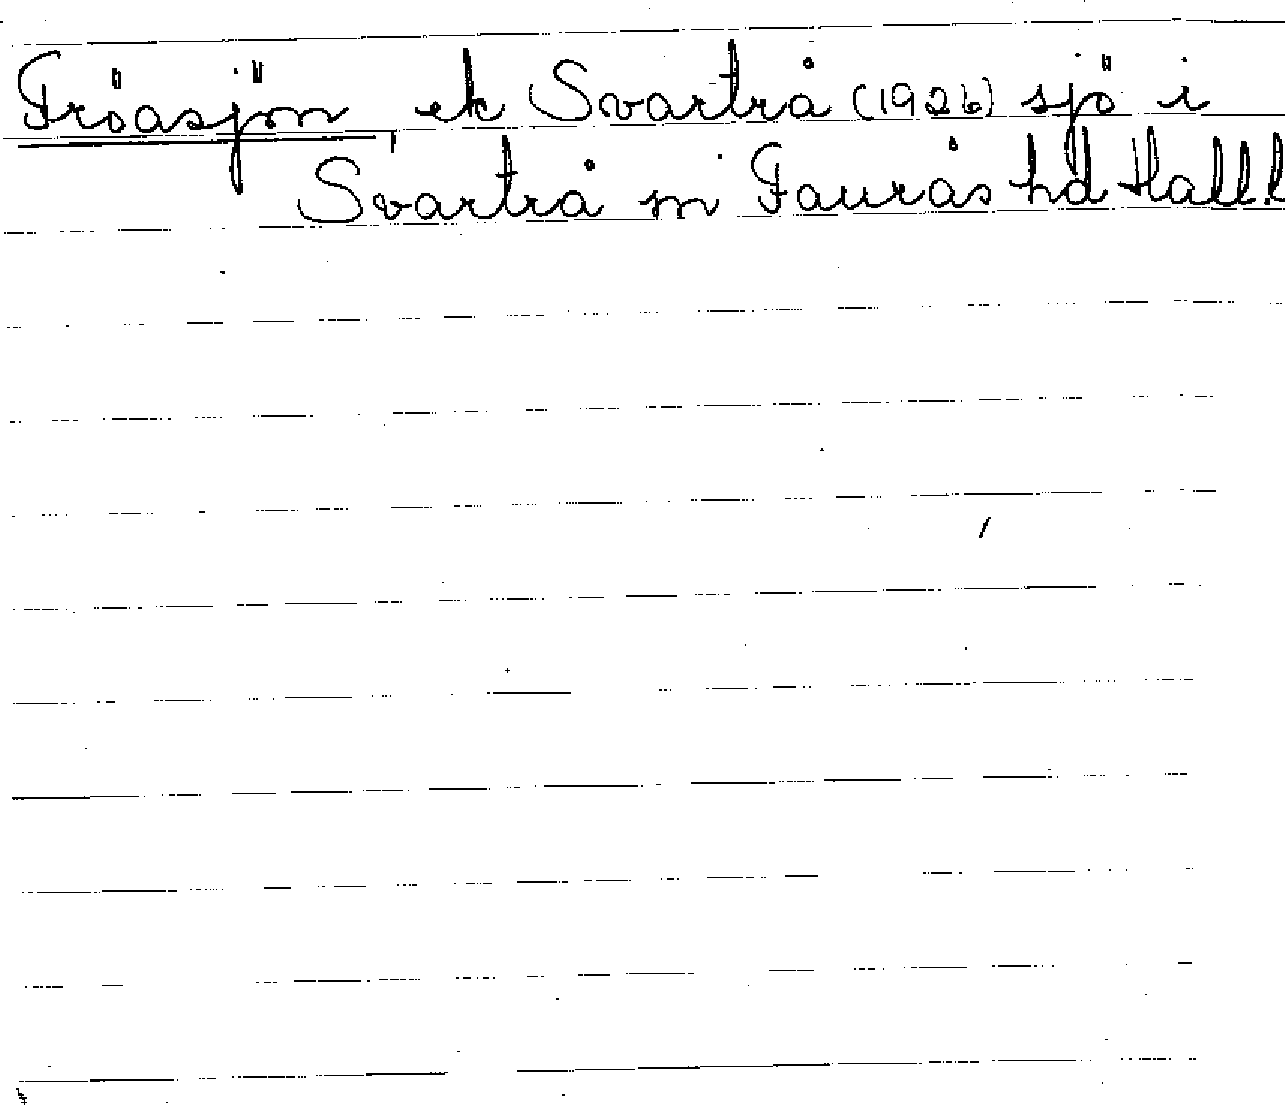 Fröasjön ek Svartrå (1926) sjö i
Svartrå sn Faurås hd Hall.l